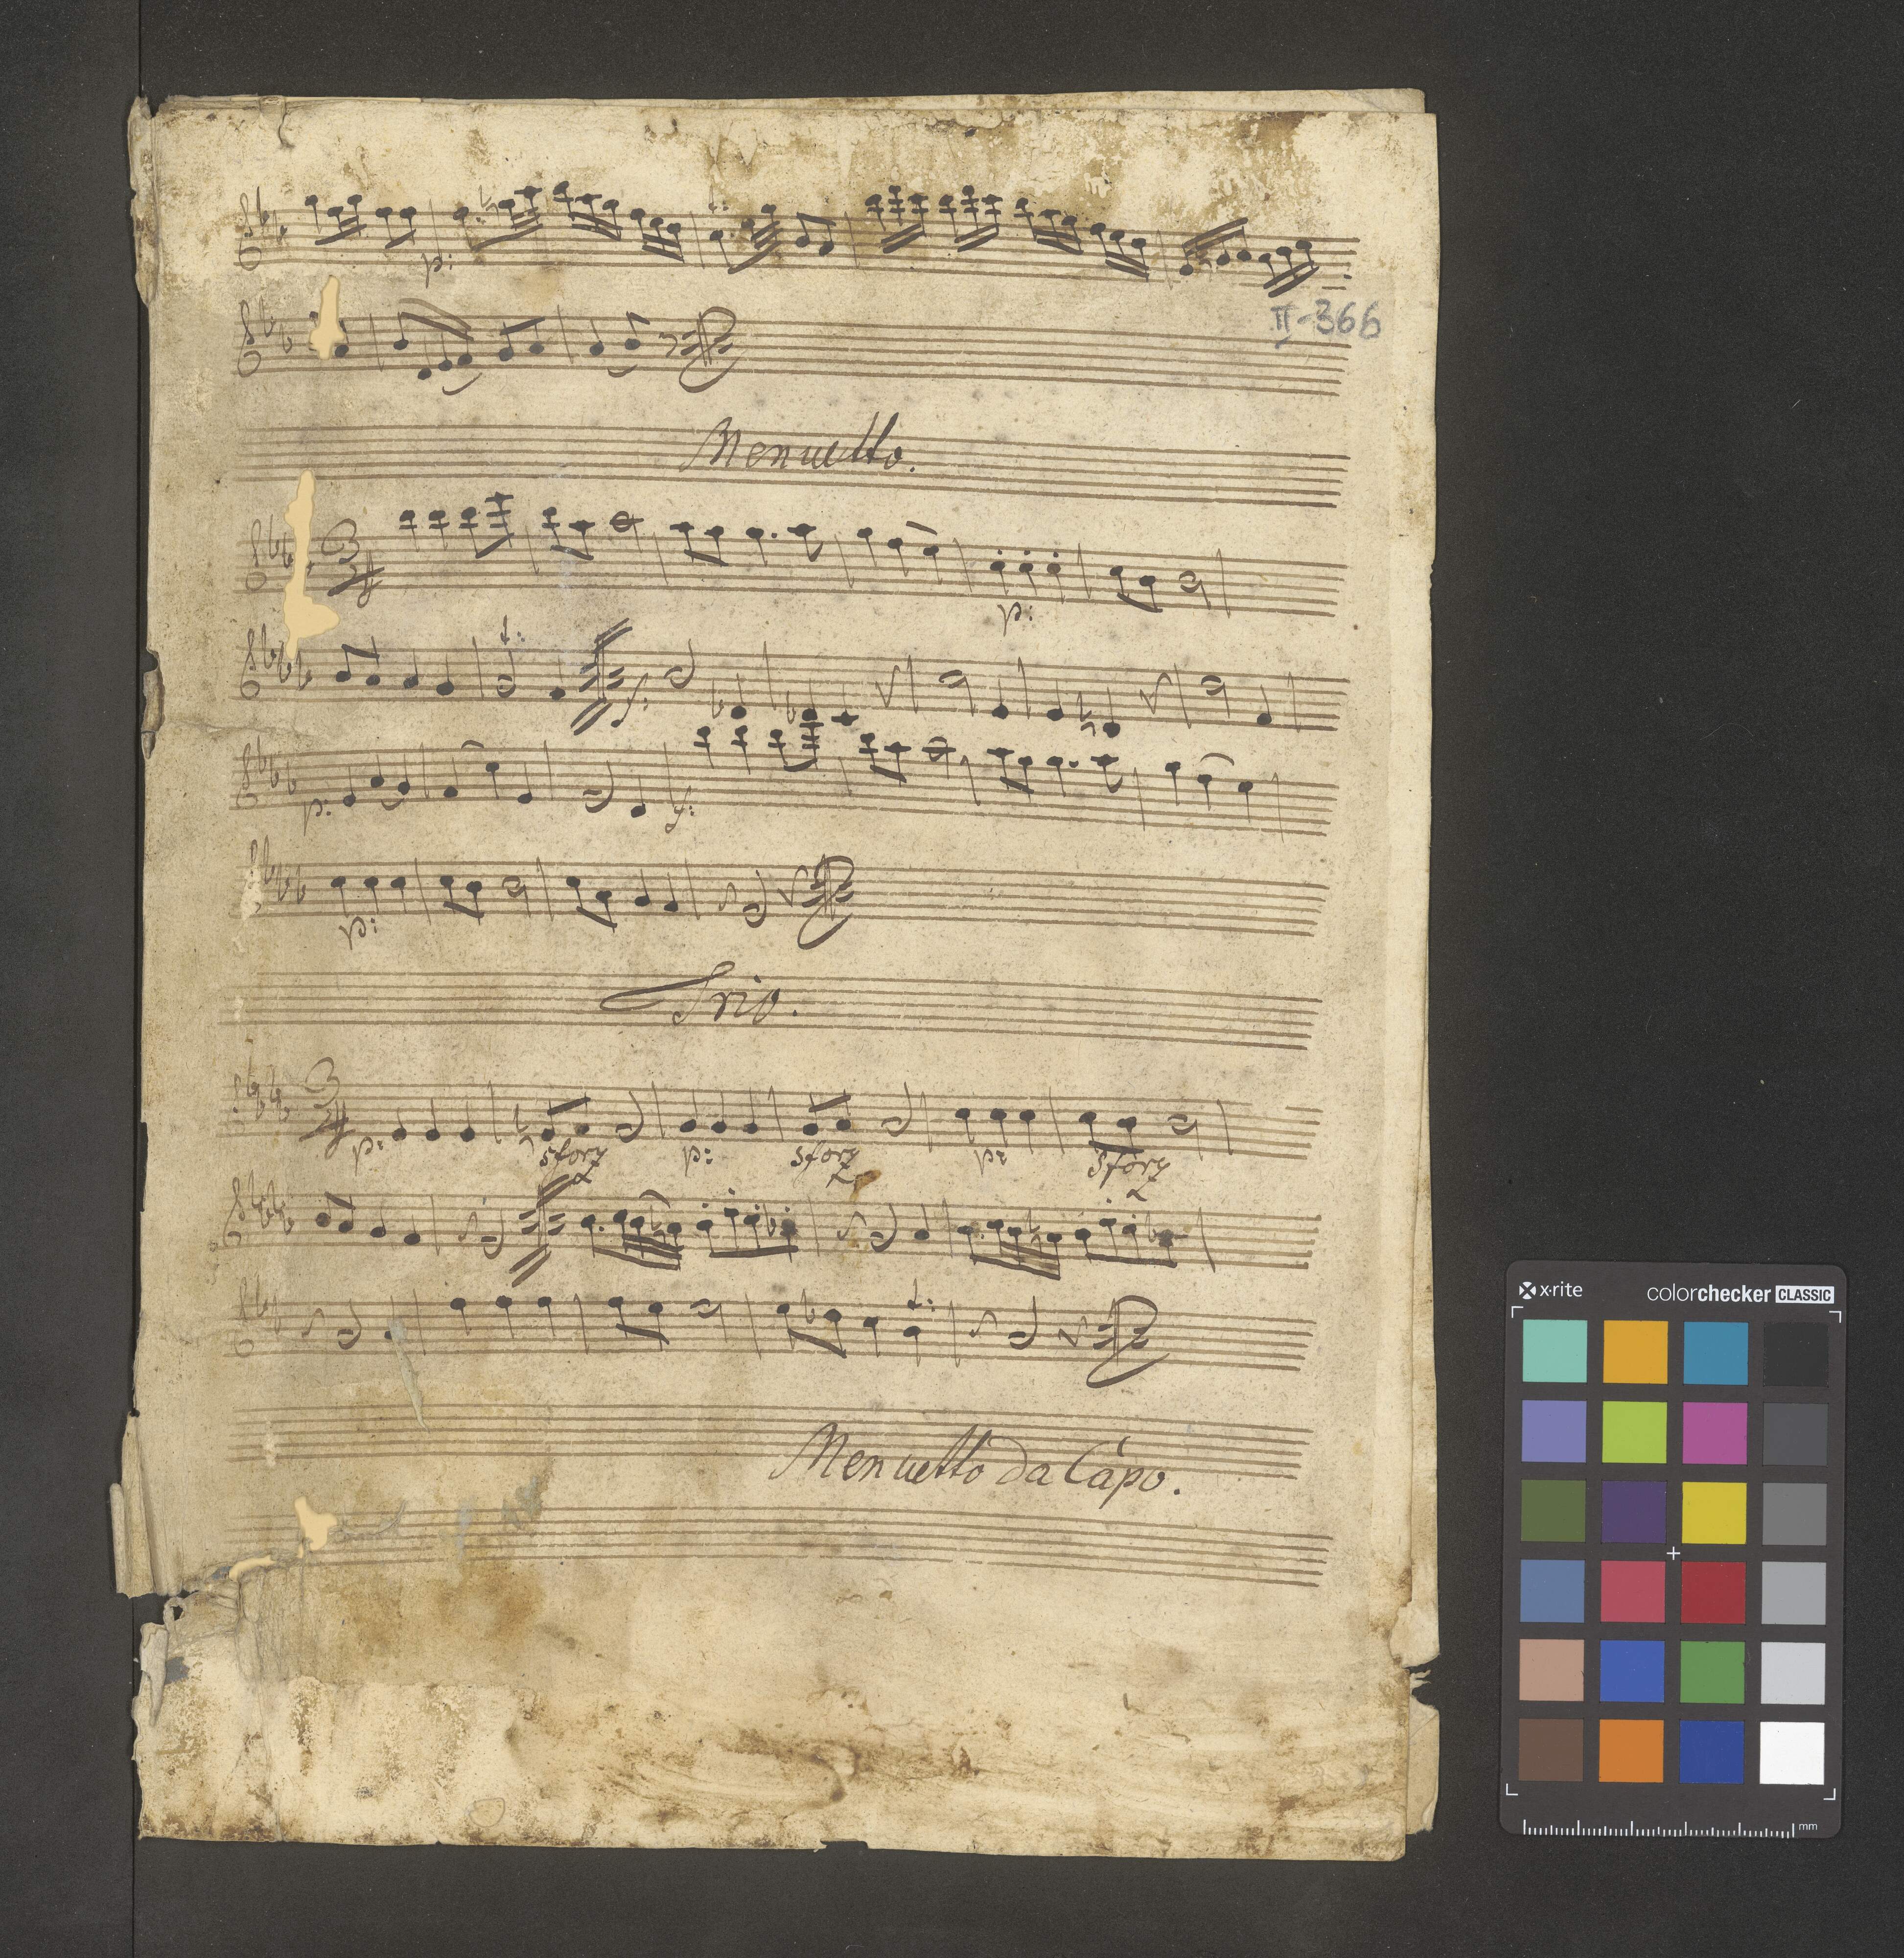 p:
f:
II-366
Menuetto.
3
4
p:
f:
f:
p:
f:
p:
Trio.
3
4
p:
sforz
p:
sforz
p:
sforz
f:
Menuetto da Capo.
x-rite
colorchecker CLASSIC
mm